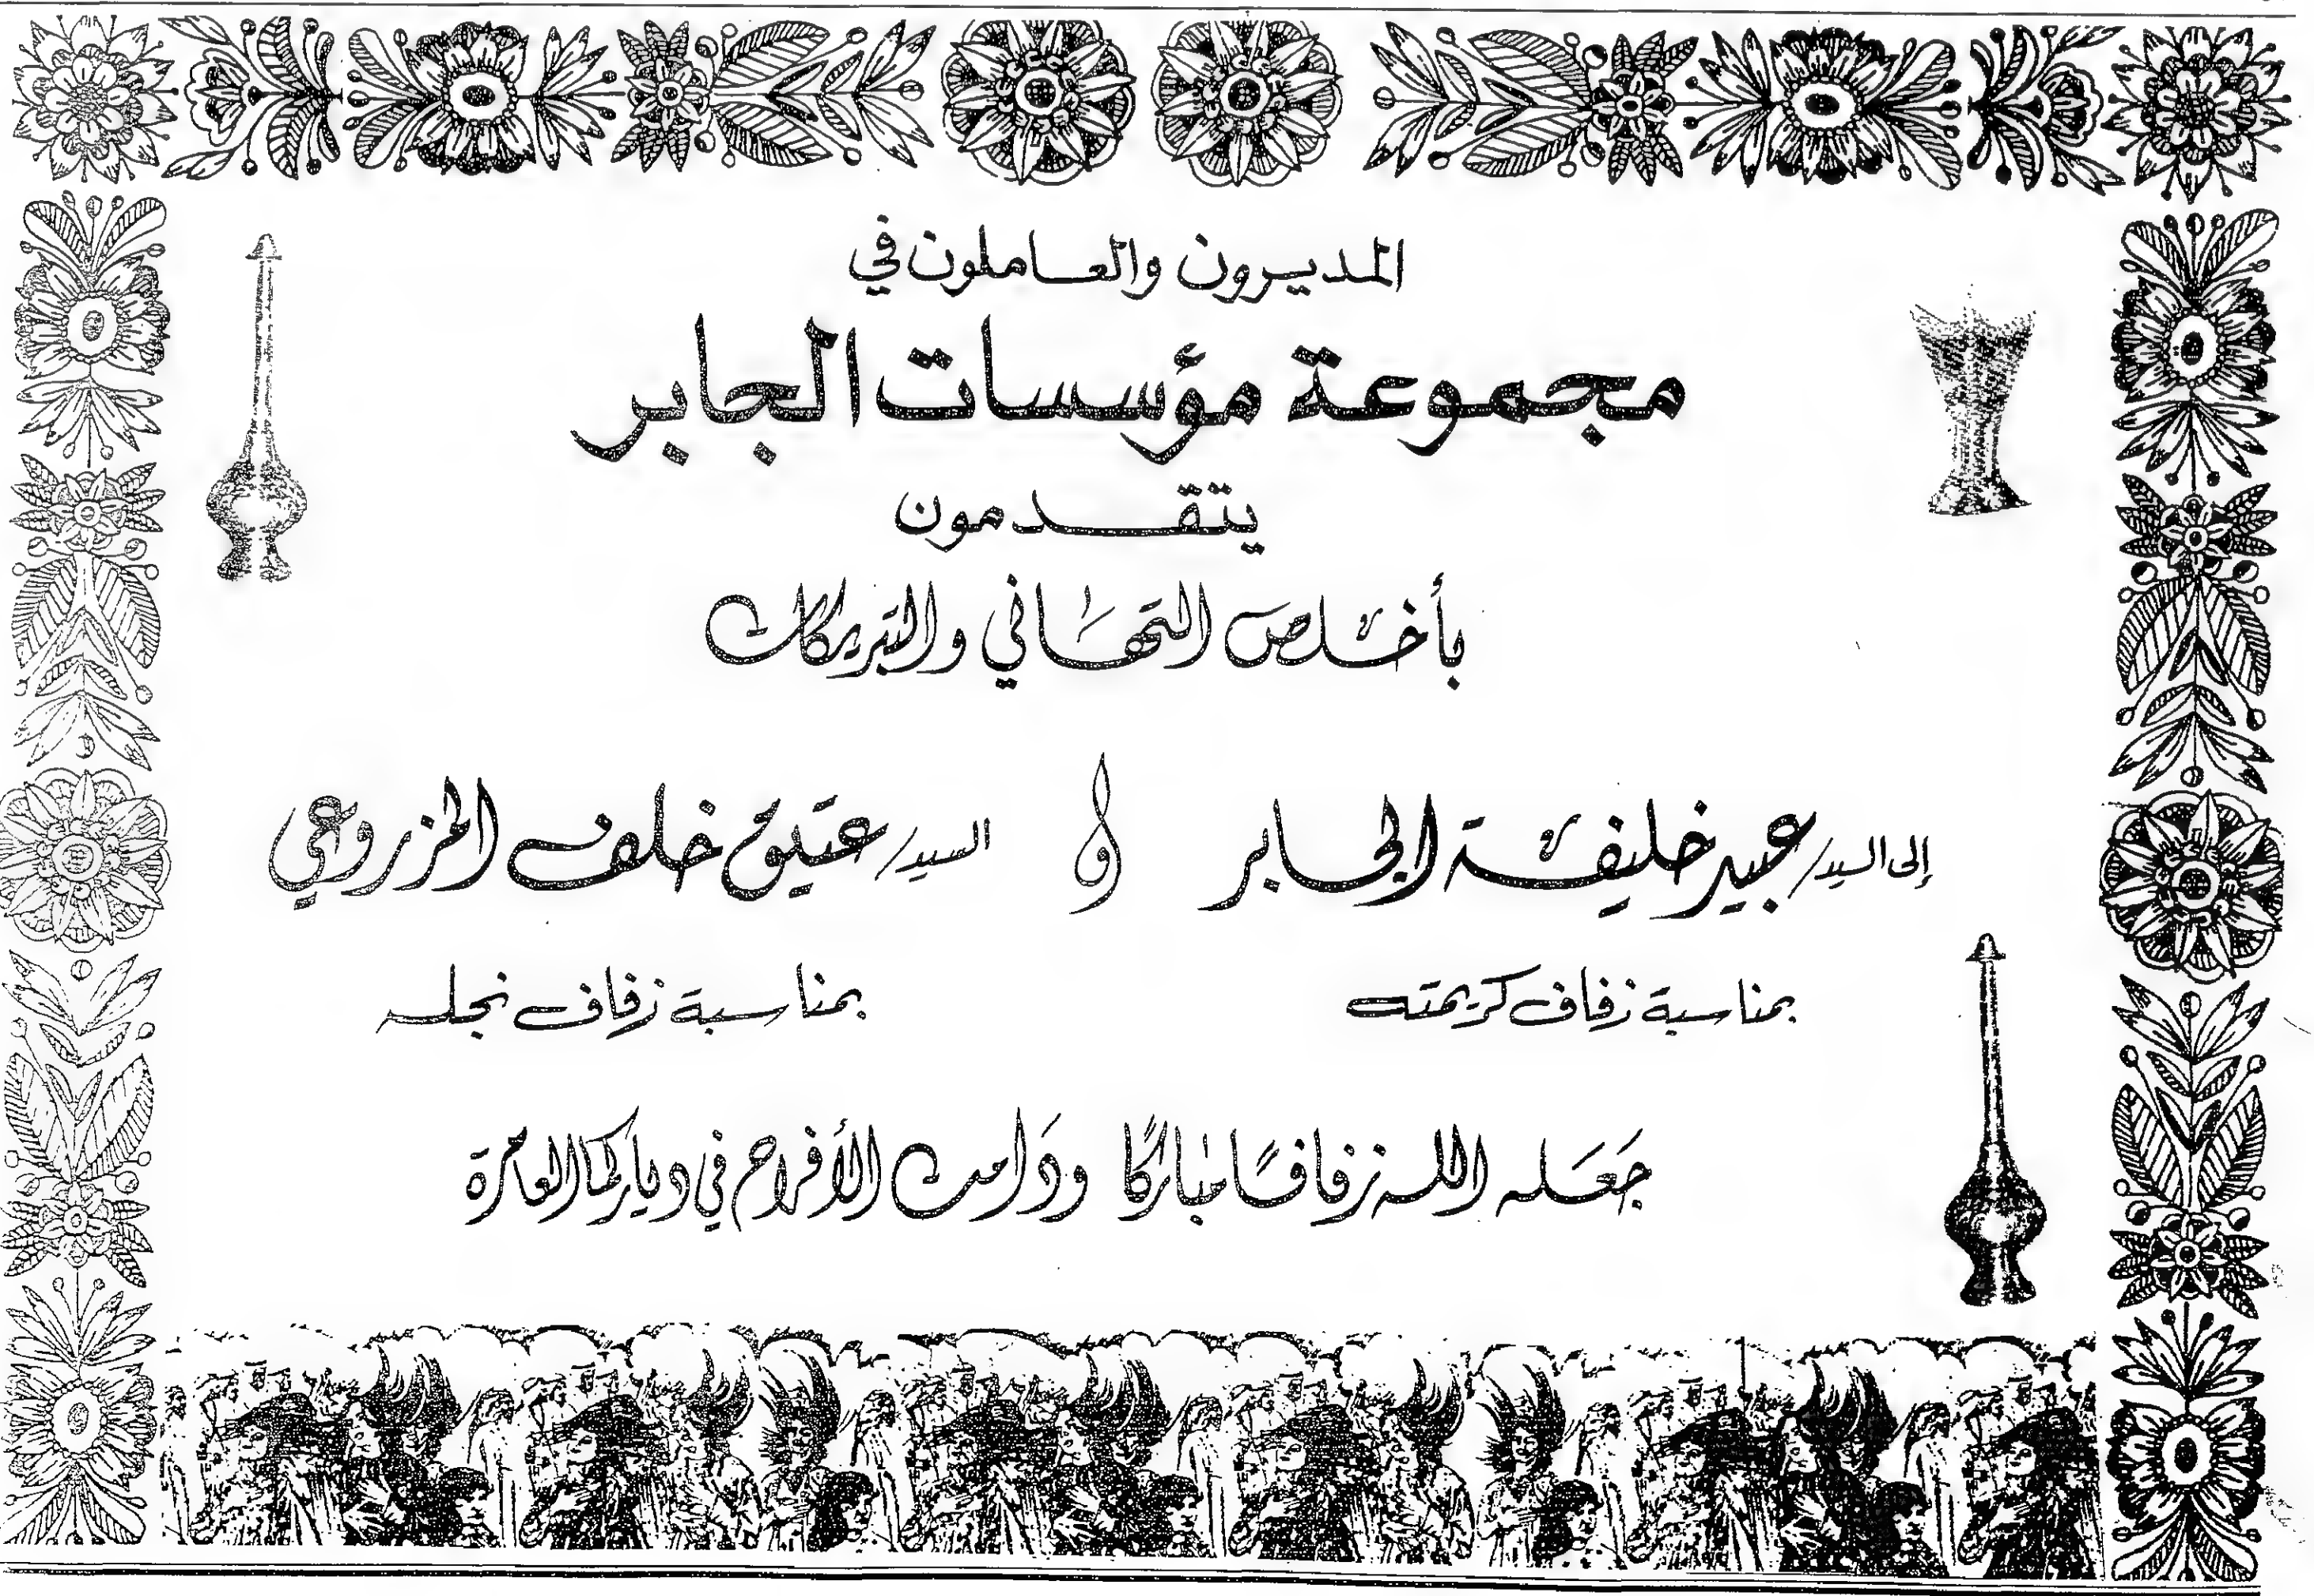 المديرون والعاملون في
مجموعة مؤسسات الجابر
يتقدمون
بأخلص التهاني والتبريكات
إلى السيد/ عبيد خليفة الجابر و السيد/ عتيق خلف المزروعي
بمناسبة زفاف كريمته بمناسبة زفاف نجله
جَعَله الله زفافًا مباركًا ودَامت الأفراح في دياركما العامرة